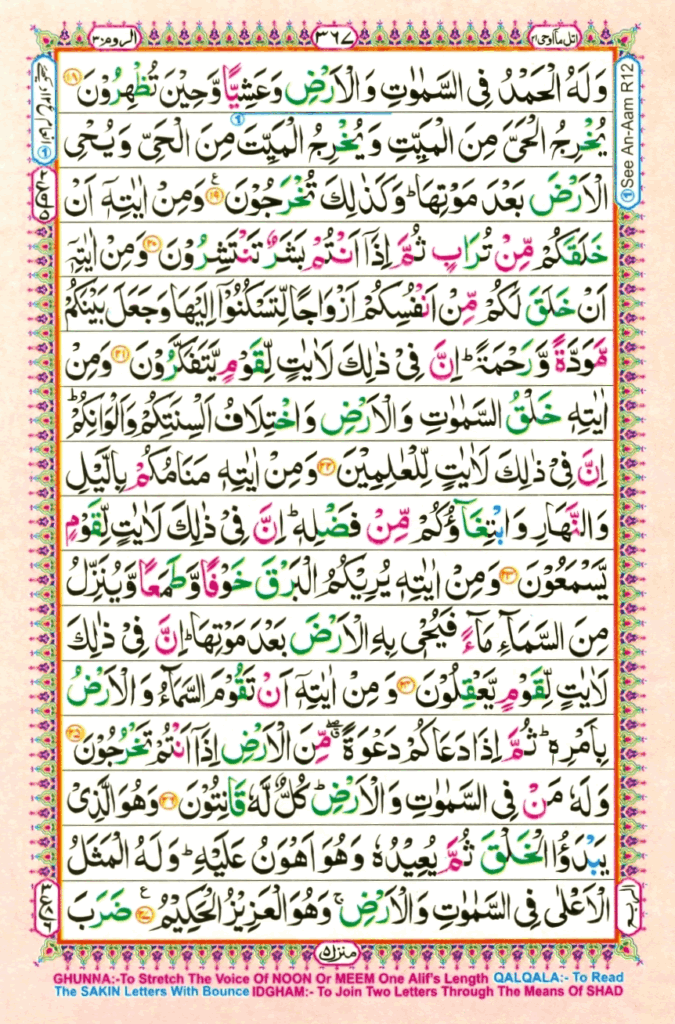 اتل مآ اوحی ۲۱ ۳۶۷ الروم ۳۰
وَلَهُ الْحَمْدُ فِی السَّمٰوٰتِ وَالْاَرْضِ وَعَشِیًّا وَّحِیْنَ تُظْهِرُوْنَ ﴿۱۸﴾
یُخْرِجُ الْحَیَّ مِنَ الْمَیِّتِ وَیُخْرِجُ الْمَیِّتَ مِنَ الْحَیِّ وَیُحْیِ
الْاَرْضَ بَعْدَ مَوْتِهَا ؕ وَكَذٰلِكَ تُخْرَجُوْنَ ﴿۱۹﴾ وَمِنْ اٰیٰتِهٖۤ اَنْ
خَلَقَكُمْ مِّنْ تُرَابٍ ثُمَّ اِذَاۤ اَنْتُمْ بَشَرٌ تَنْتَشِرُوْنَ ﴿۲۰﴾ وَمِنْ اٰیٰتِهٖۤ
اَنْ خَلَقَ لَكُمْ مِّنْ اَنْفُسِكُمْ اَزْوَاجًا لِّتَسْكُنُوْۤا اِلَیْهَا وَجَعَلَ بَیْنَكُمْ
مَّوَدَّةً وَّرَحْمَةً ؕ اِنَّ فِیْ ذٰلِكَ لَاٰیٰتٍ لِّقَوْمٍ یَّتَفَكَّرُوْنَ ﴿۲۱﴾ وَمِنْ
اٰیٰتِهٖ خَلْقُ السَّمٰوٰتِ وَالْاَرْضِ وَاخْتِلَافُ اَلْسِنَتِكُمْ وَاَلْوَانِكُمْ ؕ
اِنَّ فِیْ ذٰلِكَ لَاٰیٰتٍ لِّلْعٰلِمِیْنَ ﴿۲۲﴾ وَمِنْ اٰیٰتِهٖ مَنَامُكُمْ بِالَّیْلِ
وَالنَّهَارِ وَابْتِغَآؤُكُمْ مِّنْ فَضْلِهٖ ؕ اِنَّ فِیْ ذٰلِكَ لَاٰیٰتٍ لِّقَوْمٍ
یَّسْمَعُوْنَ ﴿۲۳﴾ وَمِنْ اٰیٰتِهٖ یُرِیْكُمُ الْبَرْقَ خَوْفًا وَّطَمَعًا وَّیُنَزِّلُ
مِنَ السَّمَآءِ مَآءً فَیُحْیٖ بِهِ الْاَرْضَ بَعْدَ مَوْتِهَا ؕ اِنَّ فِیْ ذٰلِكَ
لَاٰیٰتٍ لِّقَوْمٍ یَّعْقِلُوْنَ ﴿۲۴﴾ وَمِنْ اٰیٰتِهٖۤ اَنْ تَقُوْمَ السَّمَآءُ وَالْاَرْضُ
بِاَمْرِهٖ ؕ ثُمَّ اِذَا دَعَاكُمْ دَعْوَةً مِّنَ الْاَرْضِ اِذَاۤ اَنْتُمْ تَخْرُجُوْنَ ﴿۲۵﴾
وَلَهٗ مَنْ فِی السَّمٰوٰتِ وَالْاَرْضِ ؕ كُلٌّ لَّهٗ قَانِتُوْنَ ﴿۲۶﴾ وَهُوَ الَّذِیْ
یَبْدَؤُا الْخَلْقَ ثُمَّ یُعِیْدُهٗ وَهُوَ اَهْوَنُ عَلَیْهِ ؕ وَلَهُ الْمَثَلُ
الْاَعْلٰی فِی السَّمٰوٰتِ وَالْاَرْضِ ۚ وَهُوَ الْعَزِیْزُ الْحَكِیْمُ ﴿۲۷﴾ ضَرَبَ
منزل ۵
①See An-Aam R12
GHUNNA:-To Stretch The Voice Of NOON Or MEEM One Alif's Length QALQALA:- To Read
The SAKIN Letters With Bounce IDGHAM:- To Join Two Letters Through The Means Of SHAD